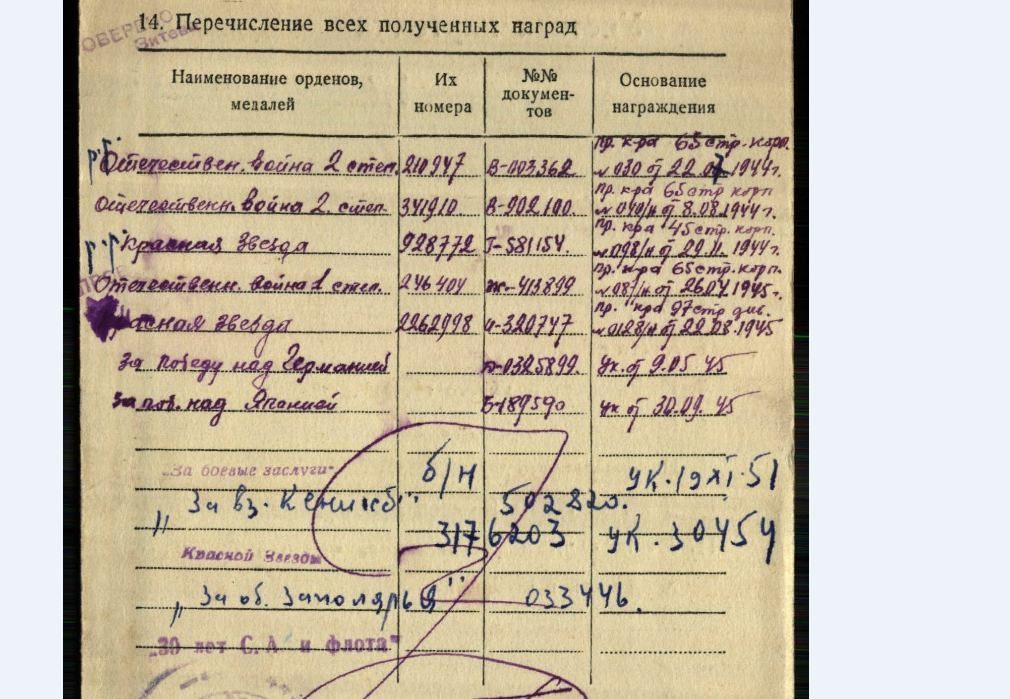 ОВЕРЕНО
14. Перечисление всех полученных наград
Зитева
Наименование орденов, медалей
Их номера
№№ документов
Основание награждения
Отечествен. война 2 степ. 210947 В-003362 пр. к-ра 65 стр. корп.
№ 030 от 22.07.1944г.
Отечественн. война 2. степ. 341910 В-902100. Пр. кра 65 стр корп
№ 040/н от 8.08.1944 г.
Красная Звезда 928772 Г-581154. Пр. кра 45 стр. корп.
№ 098/н от 29.11.1944г.
Отечественн. война 1 степ. 246404 ж-413899 Пр. к-ра 65 стр. корп.
№ 087/н от 26.04.1945г.
Красная звезда 2262998 и-320747 Пр. к-ра 97 стр див.
№ 0128/н от 22.08.1945
За победу над Германией 0325899 Ук. от 9.05 45
За поб. над Японией Б-189590 ук от 30.09. 45
„За боевые заслуги" б/н УК. 19 XI. 51
„За вз. Кенигсб" 502820.
Красной Звезды 3176203 УК. 30 4 54
„За об. Заполярья" 033446.
„30 лет С.А и флота"